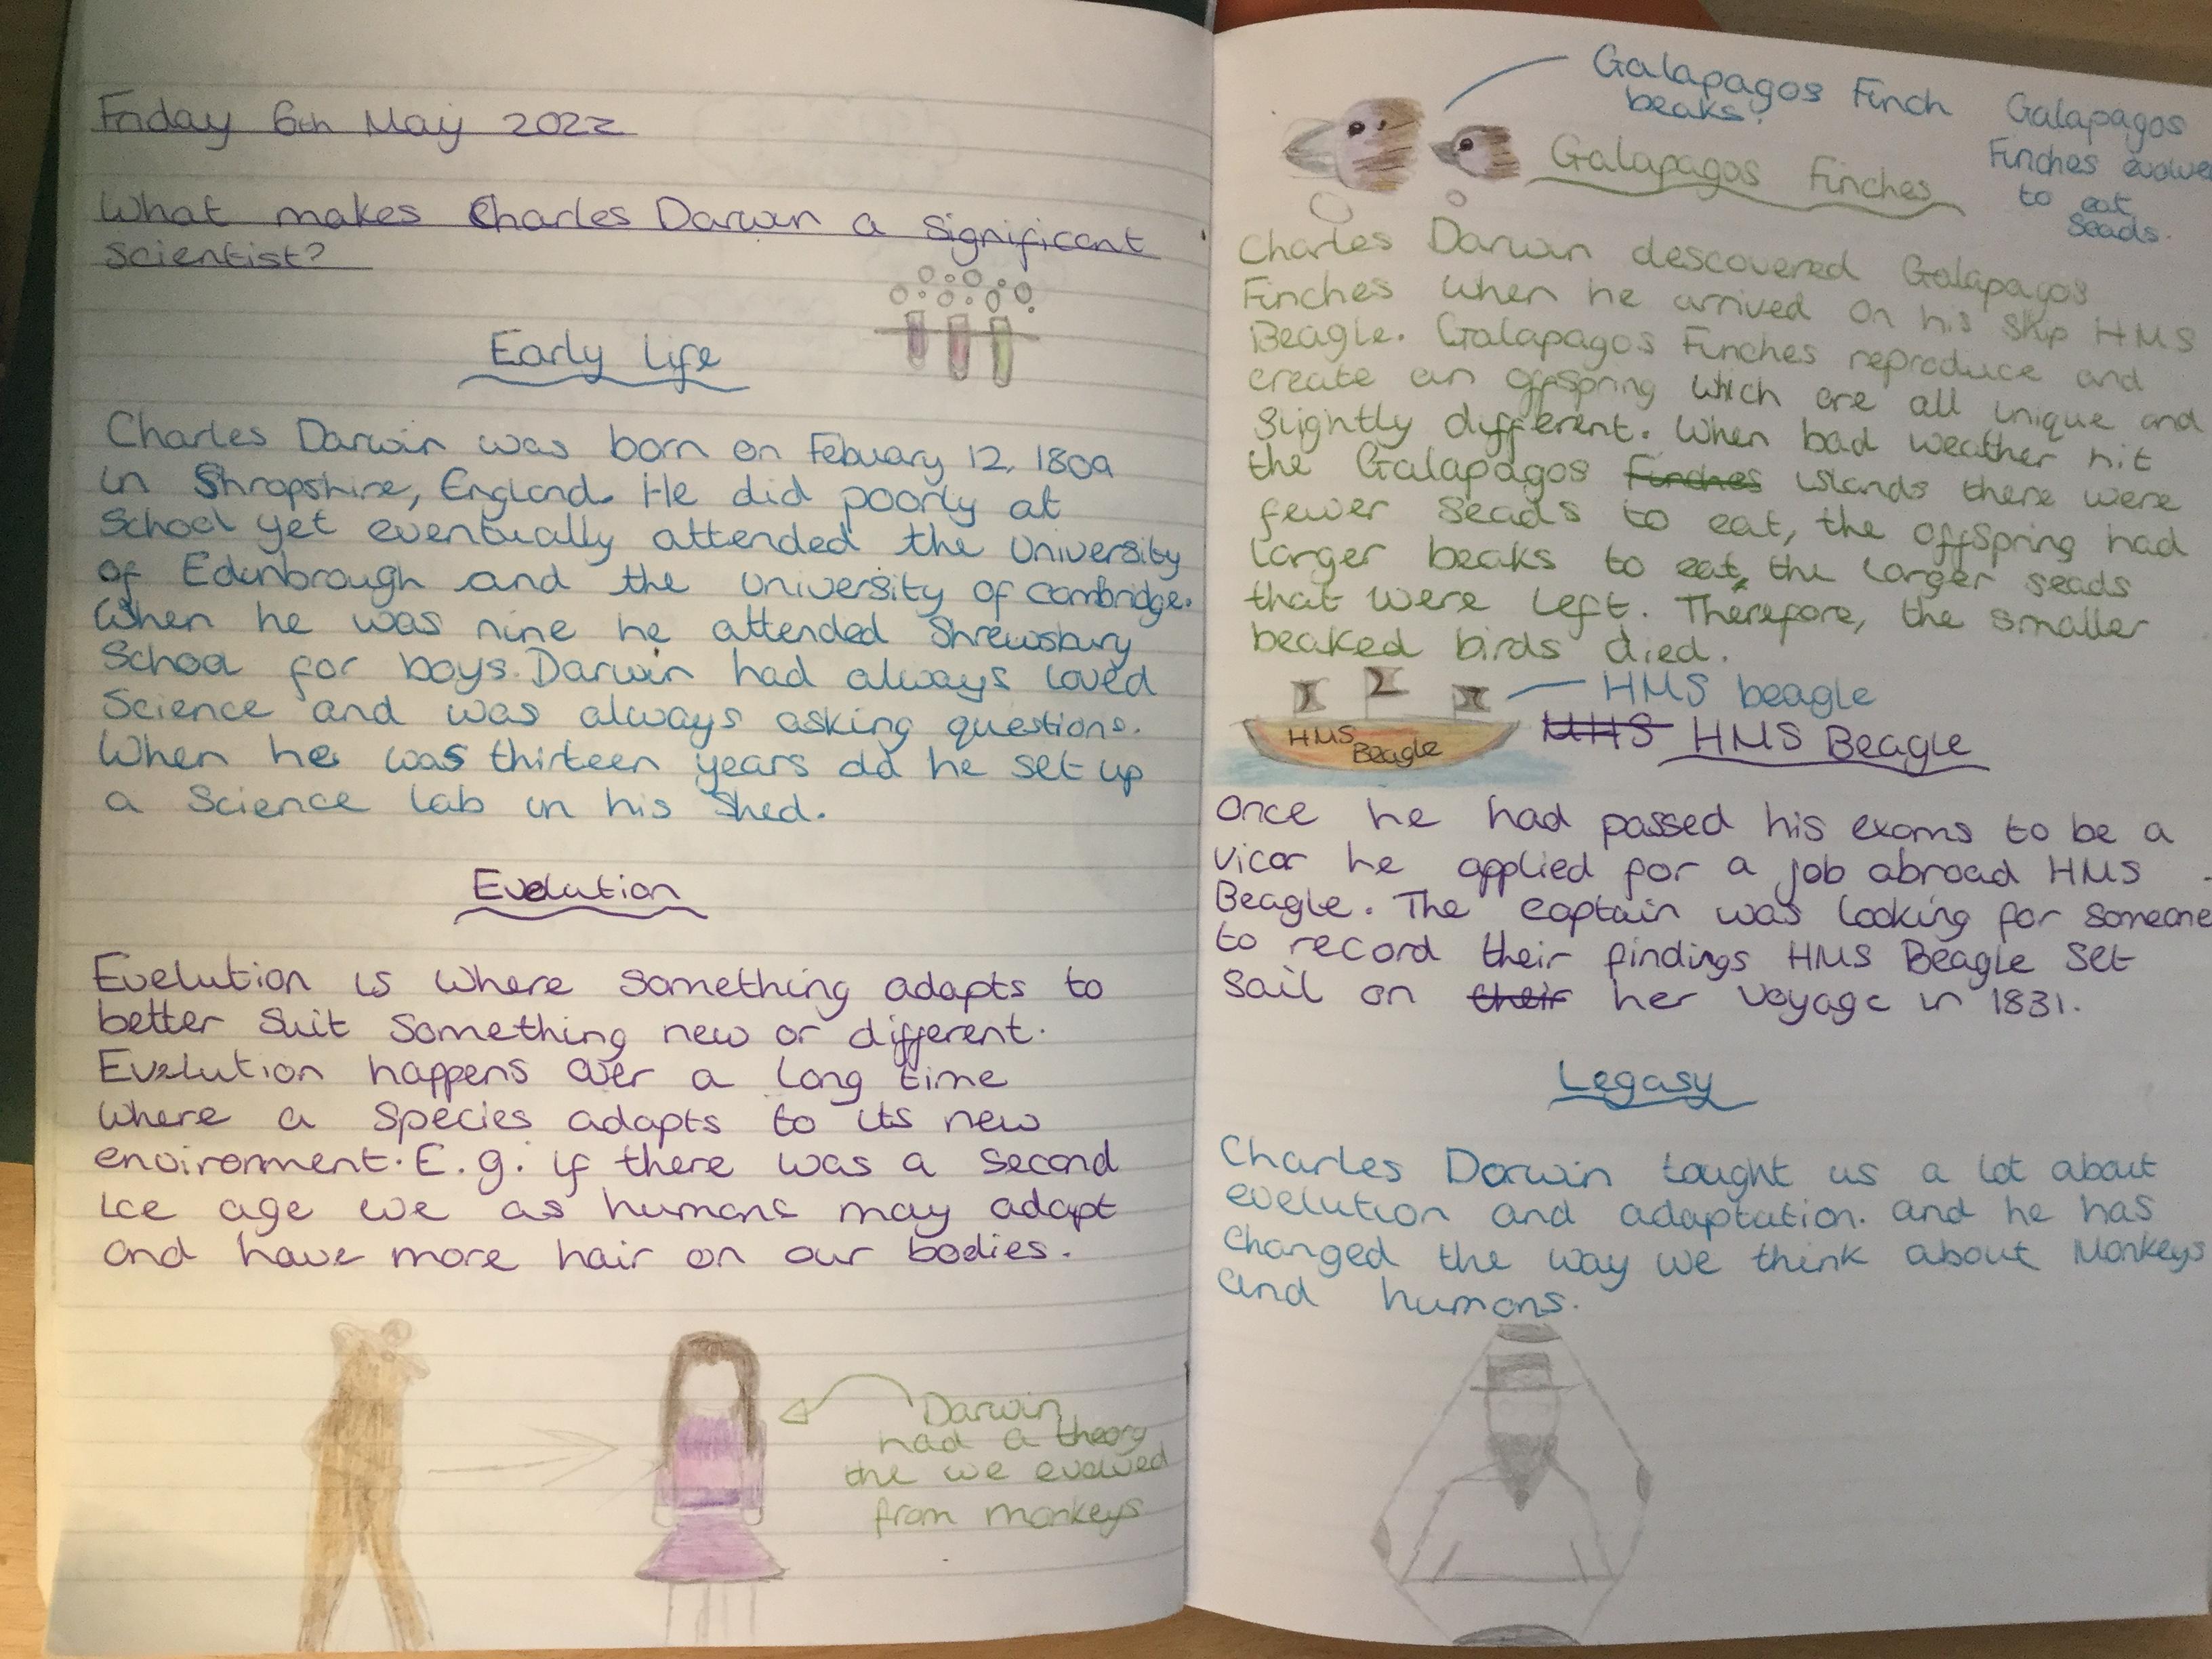 Friday 6th May 2022
What makes Charles Darwin a significant
scientist?
Early Life
Charles Darwin was born on Febuary 12, 1809
in Shropshire, England. He did poorly at
School yet eventually attended the University
of Edinbrough and the University of Cambridge.
When he was nine he attended Shrewsbury
School for boys. Darwin had always loved
Science and was always asking questions.
When he was thirteen years old he set up
a Science lab in his Shed.
Evelution
Evelution is where something adapts to
better suit something new or different.
Evelution happens over a long time
where a species adapts to its new
environment. E.g. if there was a second
ice age we as humans may adapt
and have more hair on our bodies.
Darwin
had a theory
the we evolved
from monkeys
Galapagos Finch
beaks!
Galapagos
Finches evolve
to eat
Seads.
Galapagos Finches
Charles Darwin descovered Galapagos
Finches when he arrived on his ship HMS
Beagle. Galapagos Finches reproduce and
create an offspring which are all unique and
slightly different. When bad weather hit
the Galapagos Finches islands there were
fewer seads to eat, the offspring had
larger beaks to eat, the larger seads
that were left. Therefore, the smaller
beaked birds died.
HMS beagle
HMS
Beagle
MHS HMS Beagle
Once he had passed his exams to be a
vicar he applied for a job abroad HMS
Beagle. The captain was looking for someone
to record their findings HMS Beagle set
sail on their her voyage in 1831.
Legasy
Charles Darwin taught us a lot about
evelution and adaptation. and he has
changed the way we think about Monkeys
and humans.